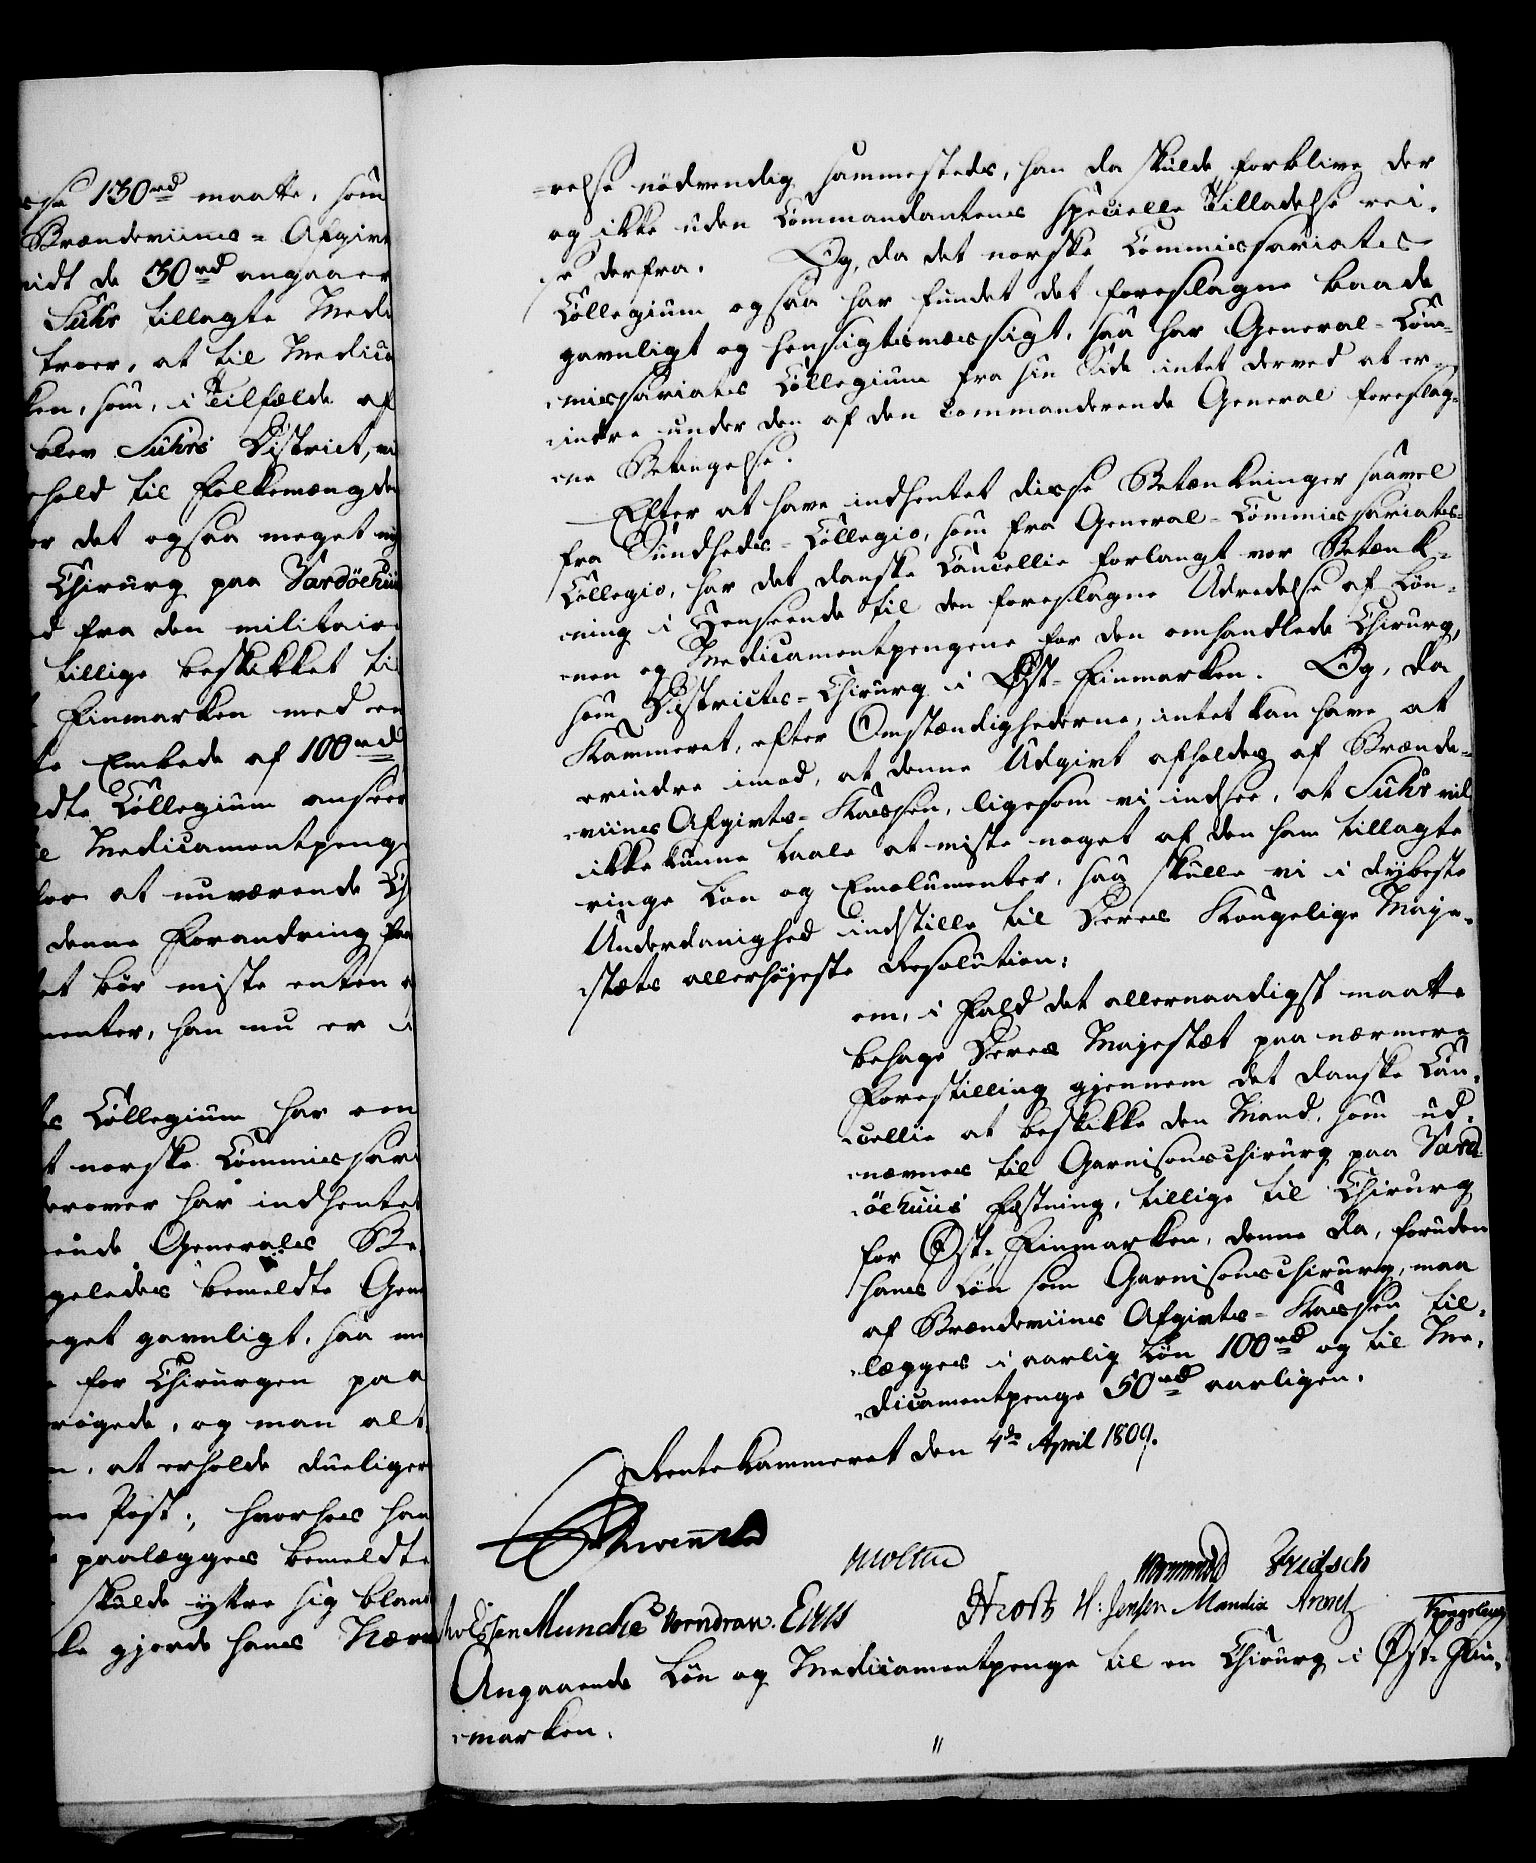 sse 130 rd maatte, som
Brændeviins- Afgivt
vidt de 30 rd angaaer
Suhr tillagte Medi
troer, at til Medica
ken, som, i Tilfælde af
blev Suhrs District, vi
hold til Folkemængde
er det ogsaa meget
Chirurg paa Vardöehuu
d fra den militair
tillige beskikket ti
Finmarken med en
te Embede af 100 rd
ldte Collegium anseer
Medicamentpeng
for at nuværende Ch
denne Forandring
et bör miste enten
menter, han nu er i
ts Collegium har om
t norske Commissari
derover har indhentet
ende Generals Be
geledes bemeldte Gene
eget gavnligt, saa
for Chirurgen paa
rögede, og man alt
at erholde dueliger
ne Post; hvorhos han
paalægges bemeldte
skulde yttre sig bland
ke gjorde hans Nærv
-relse nödvendig sammesteds, han da skulde forblive der
og ikke uden Commandantens specielle Tilladelse rei-
se derfra. Og, da det norske Commissariats
Collegium ogsaa har fundet det foreslagne baade
gavnligt og hensigtsmæssigt, saa har General-Com-
missariats Collegium fra sin Side intet derved at er-
indre under den af den commanderende General foreslag-
ne Betingelse.
Efter at have indhentet disse Betænkninger saavel
fra Sundheds-Collegio, som fra General-Commissariats-
Collegio, har det danske Cancellie forlangt vor Betænk-
ning i Henseende til den foreslagne Udredelse af Løn-
nen og Medicamentpengene for den omhandlede Chirurg,
som Districts-Chirurg i Øst-Finmarken. Og, da
Kammeret, efter Omstændighederne, intet kan have at
erindre imod, at denne Udgivt afholdes af Brænde-
viins Afgivts-Kassen, ligesom vi indsee, at Suhr vil
ikke kunne taale at miste noget af den ham tillagte
ringe Løn og Emolumenter, saa skulle vi i dybeste
Underdanighed indstille til Deres Kongelige Maje-
stæts allerhöjeste Resolution:
om, i Fald det allernaadigst maatte
behage Deres Majestæt paa nærmere
Forestilling gjennem det danske Can-
cellie at beskikke den Mand, som ud-
nævnes til Garnisonschirurg paa Vard-
öehuus Fæstning, tillige til Chirurg
for Øst-Finmarken, denne da, foruden
hans Løn som Garnisonschirurg, maa
af Brændeviins Afgivts-Kassen til-
lægges i aarlig Løn 100 rd og til Me-
dicamentpenge 50 rd aarligen.
Rentekammeret den 4de April 1809.
Moltke Wormskiold Fridsch
Munche Vorndran. Hrosb H: Jensen Mandix Arentz
Angaaende Løn og Medicamentpenge til en Chirurg i Øst-Fin-
marken.